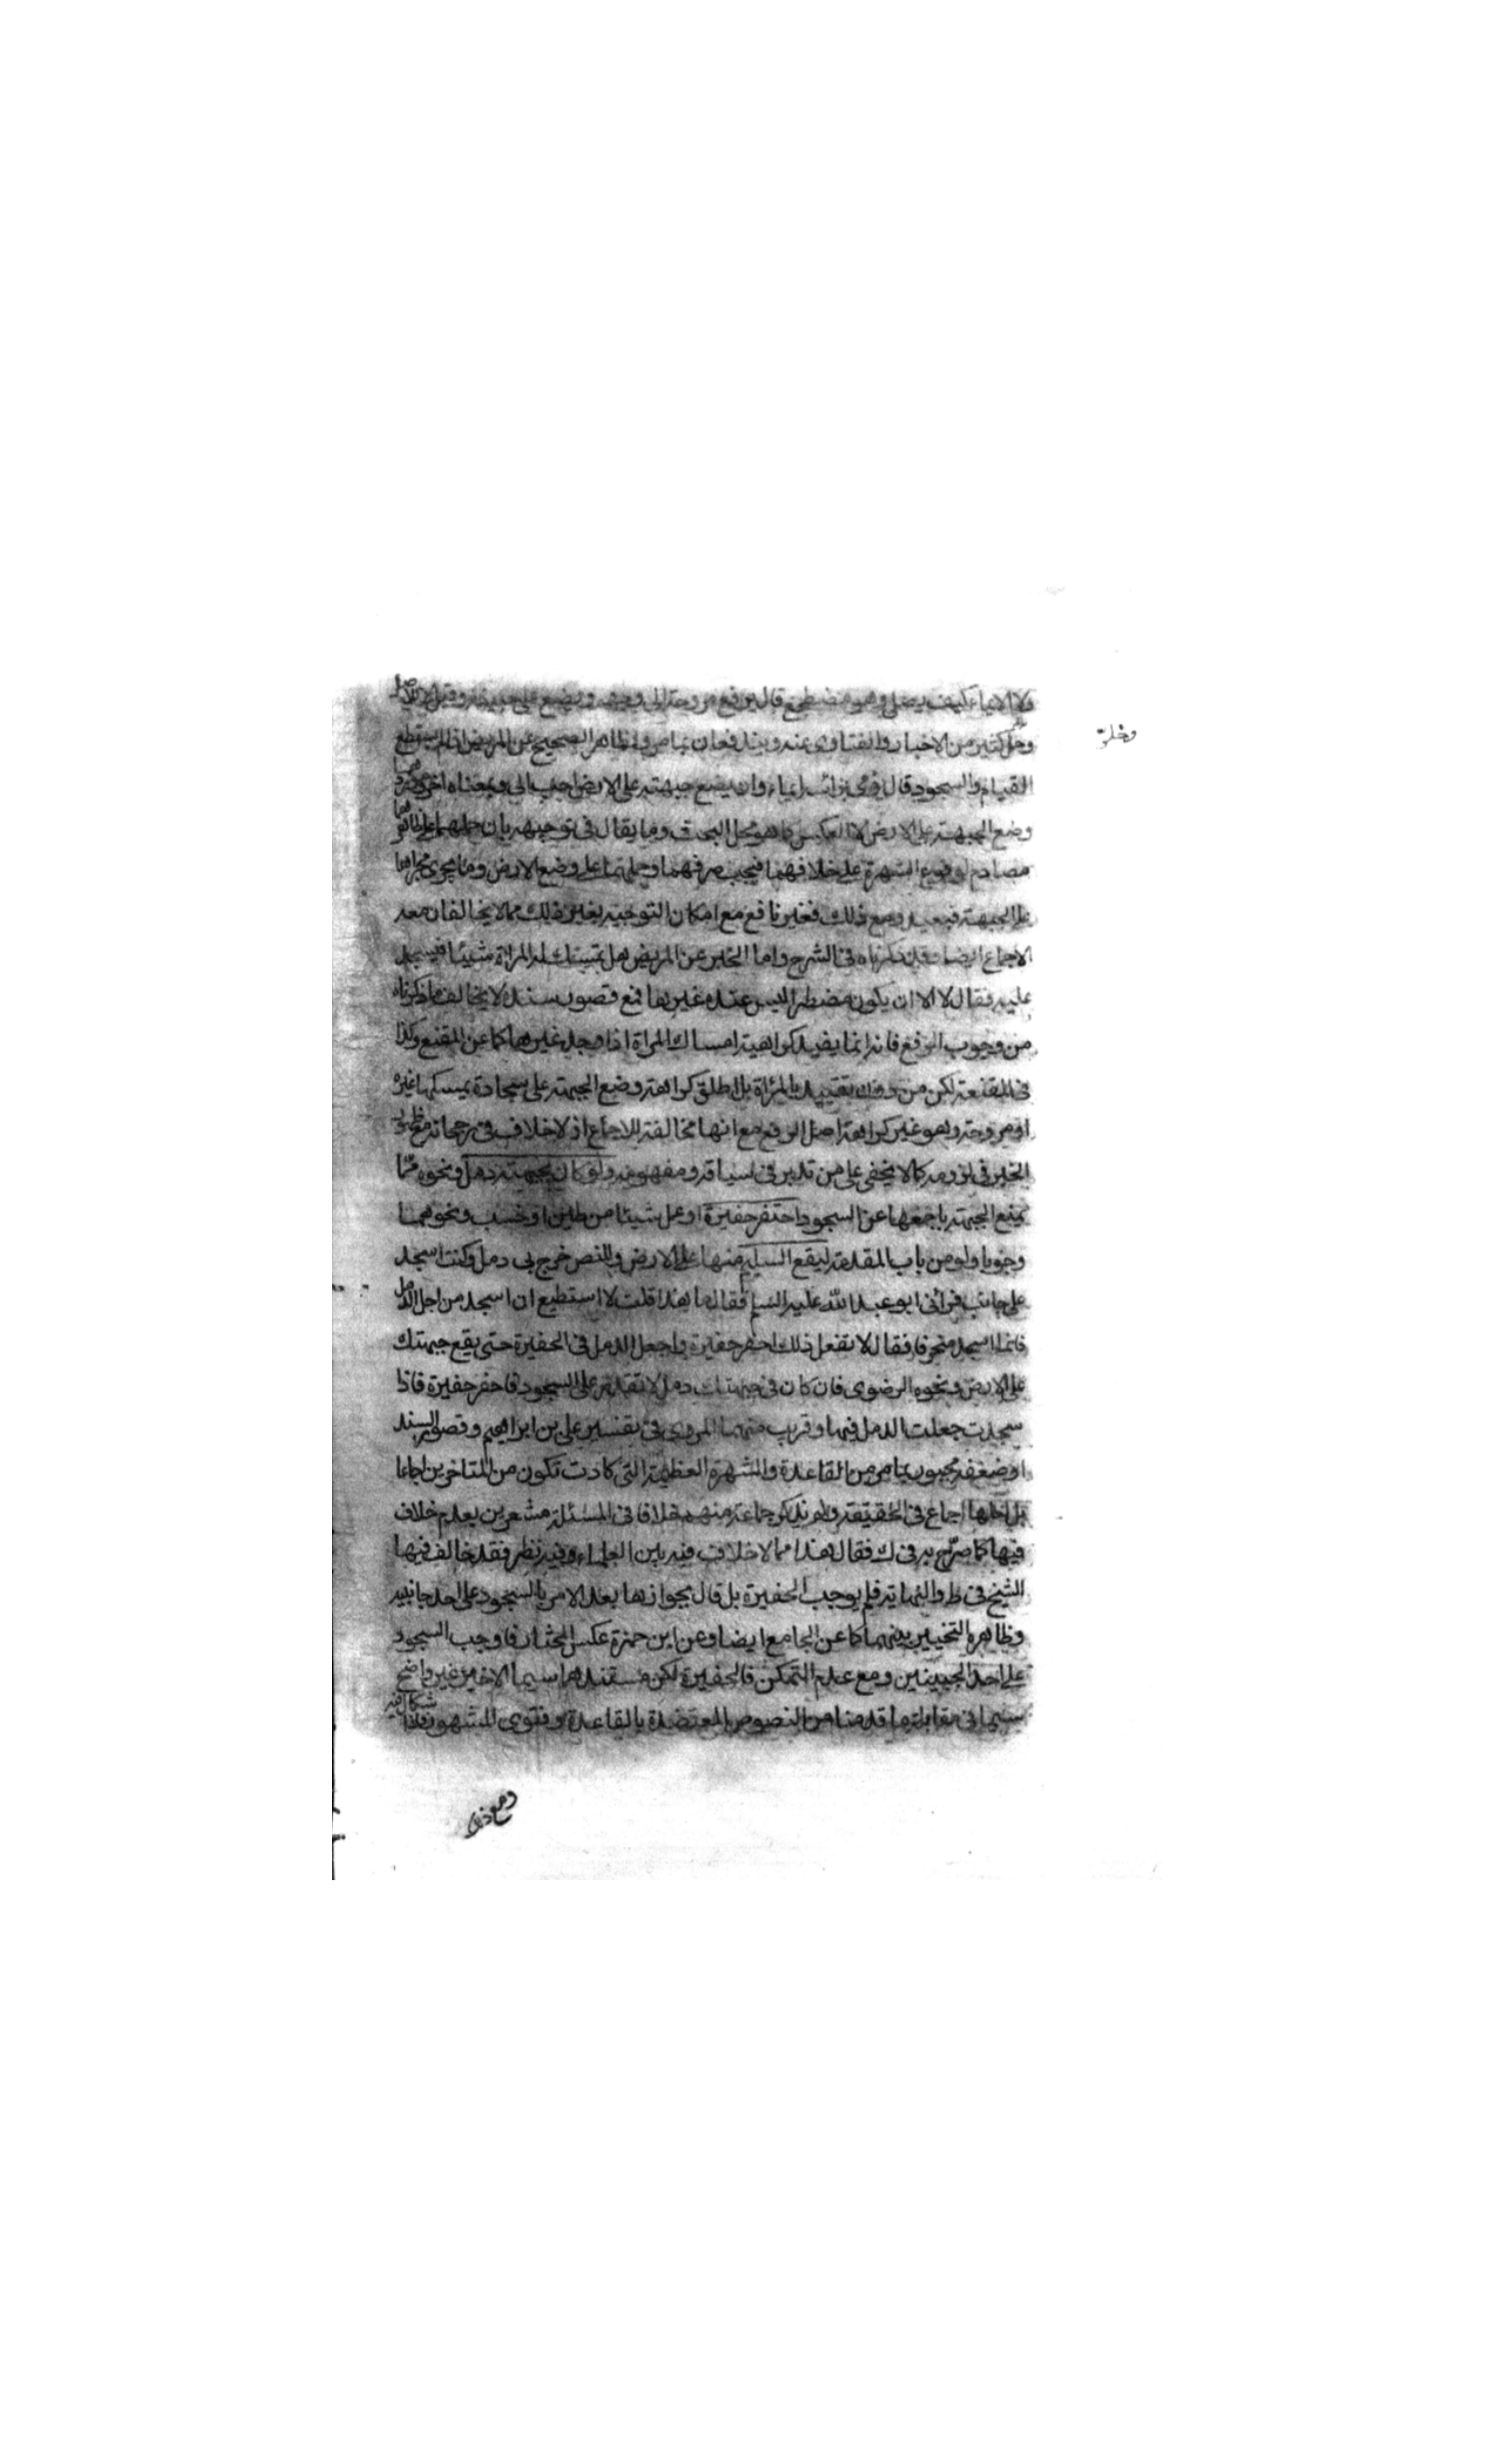 ولا الايماء كيف يصلي وهو مضطجع قال يرفع مروحة الى وجهه ويضع على جبينه وقيل لا للاصل
وخلو كثير من الاخبار والفتاوى عنه ويندفعان بما مر ولظاهر الصحيح عن المريض اذا لم يستطع
وخلو
القيام والسجود قال يومئ برأسه ايماء وان يضع جبهته على الارض احب الي وبمعناه اخر
وضع الجبهة على الارض لا العكس كما هو محل البحث وما يقال في توجيهه بان حملهما على
مصادم لوقوع الشهرة على خلافهما فيجب صرفهما وحملهما على وضع الارض وما يجري مجراها
على الجبهة فبعيد ومع ذلك فغير نافع مع امكان التوجيه بغير ذلك مما لا يخالفان معه
الاجماع ايضا وقد ذكرناه في الشرح واما الخبر عن المريض هل تمسك له المرأة شيئا فيسجد
عليه فقال لا الا ان يكون مضطرا ليس عنده غيرها فمع قصور سنده لا يخالف ما ذكرناه
من وجوب الرفع فانه انما يفيد كراهية امساك المرأة اذا وجد غيرها كما عن المقنع وكذا
في المقنعة لكن من دون تقييد بالمرأة بل اطلق كراهة وضع الجبهة على سجادة يمسكها غيره
او مروحة وهو غير كراهة اصل الرفع مع انها مخالفة للاجماع اذ لا خلاف في رجحانه مع
الخبر في لزومه كما لا يخفى على من تدبر في سياقه ومفهومه ولو كان بجبهته دمل ونحوه مما
يمنع الجبهة باجمعها عن السجود احتفر حفيرة او عمل شيئا من طين او خشب ونحوهما
وجوبا ولو من باب المقدمة ليقع السليم منها على الارض وللنص خرج بي دمل وكنت اسجد
على جانب فرآني ابو عبد الله عليه السلم فقال ما هذا قلت لا استطيع ان اسجد من اجل الدمل
فانما اسجد منحرفا فقال لا تفعل ذلك احفر حفيرة واجعل الدمل في الحفيرة حتى يقع جبهتك
على الارض ونحوه الرضوي فان كان في جبهتك دمل لا تقدر على السجود فاحفر حفيرة فاذا
سجدت جعلت الدمل فيها وقريب منهما المروي في تفسير علي بن ابراهيم وقصور السند
او ضعفه مجبور بما مر من القاعدة والشهرة العظيمة التي كادت تكون من المتاخرين اجماعا
بل لعلها اجماع في الحقيقة ولم يذكر جماعة منهم خلافا في المسئلة مشعرين بعدم خلاف
فيها كما صرح به في ك فقال هذا مما لا خلاف فيه بين العلماء وفيه نظر فقد خالف فيها
الشيخ في ط والنهاية فلم يوجب الحفيرة بل قال بجوازها بعد الامر بالسجود على احد جانبيه
وظاهره التخيير بينهما كما عن الجامع ايضا وعن ابن حمزة عكس المختار فاوجب السجود
على احد الجبينين ومع عدم التمكن فالحفيرة لكن مستندهما سيما الاخير غير واضح
سيما في مقابلة ما قدمنا من النصوص المعتضدة بالقاعدة وفتوى المشهور